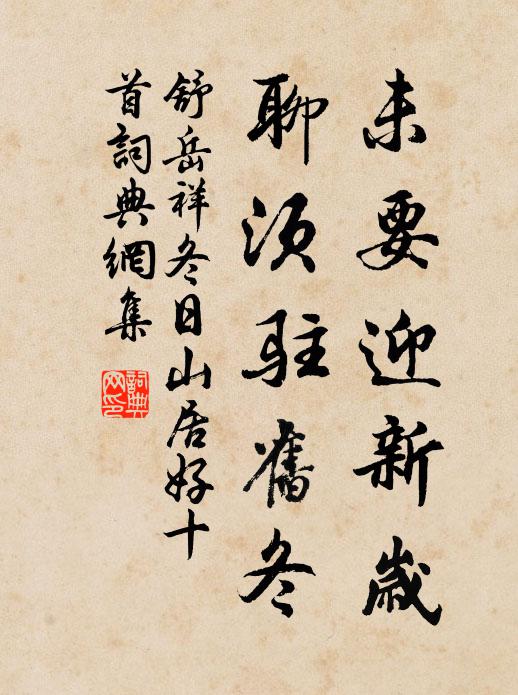 未要迎新歲
聊須駐舊冬
舒岳祥冬日山居好十
首詞典網集
詞典
网印